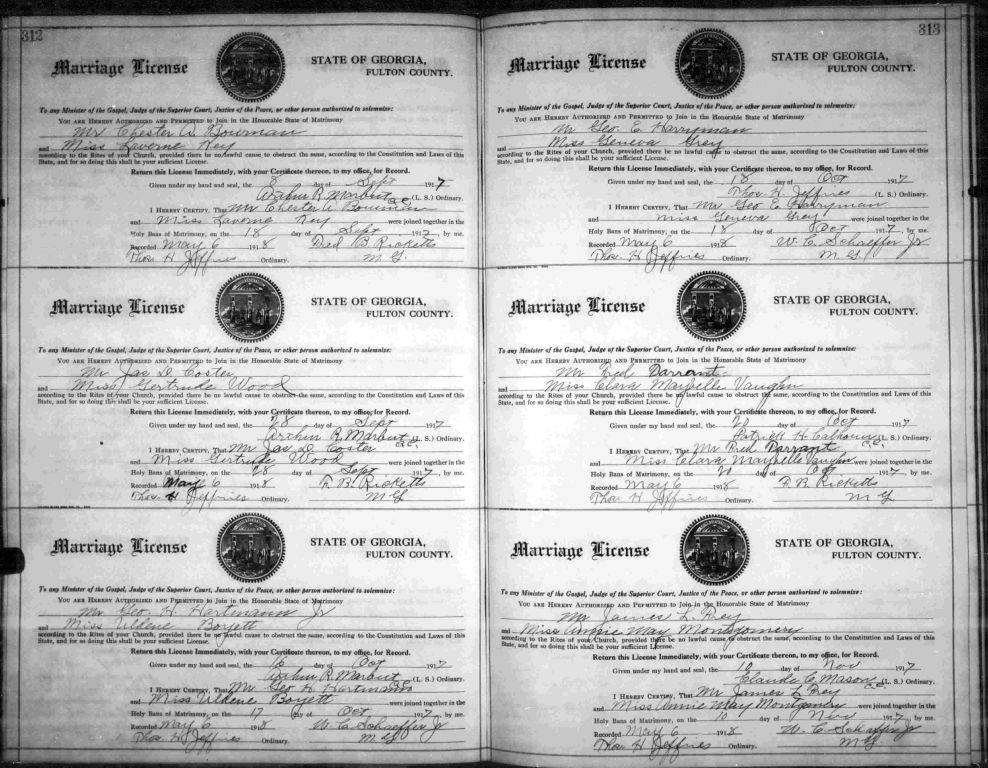 312
Marriage License
STATE OF GEORGIA,
FULTON COUNTY.
To any Minister of the Gospel, Judge of the Superior Court, Justice of the Peace, or other person authorized to solemnize:
YOU ARE HEREBY AUTHORIZED AND PERMITTED to Join in the Honorable State of Matrimony
Mr Chester A Bowman
and Miss Laverne Key
according to the Rites of your Church, provided there be no lawful cause to obstruct the same, according to the Constitution and Laws of this
State, and for so doing this shall be your sufficient License.
Return this License Immediately, with your Certificate thereon, to my office, for Record.
Given under my hand and seal, the 8 day of Sept 1917
Arthur R. Marbut C.C. (L. S.) Ordinary.
I HEREBY CERTIFY, That Mr Chester A Bowman
and Miss Laverne Key were joined together in the
Holy Bans of Matrimony, on the 18 day of Sept 1917, by me.
Recorded May 6 1918 Fred B Ricketts
Thos. H Jeffries Ordinary. M. G.
Marriage License
STATE OF GEORGIA,
FULTON COUNTY.
To any Minister of the Gospel, Judge of the Superior Court, Justice of the Peace, or other person authorized to solemnize:
YOU ARE HEREBY AUTHORIZED AND PERMITTED to Join in the Honorable State of Matrimony
Mr Jas D Coster
and Miss Gertrude Wood
according to the Rites of your Church, provided there be no lawful cause to obstruct the same, according to the Constitution and Laws of this
State, and for so doing this shall be your sufficient License.
Return this License Immediately, with your Certificate thereon, to my office, for Record.
Given under my hand and seal, the 28 day of Sept 1917
Arthur R. Marbut C.C. (L. S.) Ordinary.
I HEREBY CERTIFY, That Mr Jas D. Coster
and Miss Gertrude Wood were joined together in the
Holy Bans of Matrimony, on the 28 day of Sept 1917, by me.
Recorded May 6 1918 F. B. Ricketts
Thos. H Jeffries Ordinary. M G
Marriage License
STATE OF GEORGIA,
FULTON COUNTY.
To any Minister of the Gospel, Judge of the Superior Court, Justice of the Peace, or other person authorized to solemnize:
YOU ARE HEREBY AUTHORIZED AND PERMITTED to Join in the Honorable State of Matrimony
Mr Geo. H. Hartmann Jr
and Miss Uldene Boyett
according to the Rites of your Church, provided there be no lawful cause to obstruct the same, according to the Constitution and Laws of this
State, and for so doing this shall be your sufficient License.
Return this License Immediately, with your Certificate thereon, to my office, for Record.
Given under my hand and seal, the 16 day of Oct 1917
Arthur R. Marbut C.C. (L. S.) Ordinary.
I HEREBY CERTIFY, That Mr Geo H Hartmann
and Miss Uldene Boyett were joined together in the
Holy Bans of Matrimony, on the 17 day of Oct 1917, by me.
Recorded May 6 1918 W. C Schaeffer Jr
Thos. H. Jeffries Ordinary. M. G
313
Marriage License
STATE OF GEORGIA,
FULTON COUNTY.
To any Minister of the Gospel, Judge of the Superior Court, Justice of the Peace, or other person authorized to solemnize:
YOU ARE HEREBY AUTHORIZED AND PERMITTED to Join in the Honorable State of Matrimony
Mr Geo. E. Harryman
and Miss Geneva Grey
according to the Rites of your Church, provided there be no lawful cause to obstruct the same, according to the Constitution and Laws of this
State, and for so doing this shall be your sufficient License.
Return this License Immediately, with your Certificate thereon, to my office, for Record.
Given under my hand and seal, the 18 day of Oct 1917
Thos. H. Jeffries (L. S.) Ordinary.
I HEREBY CERTIFY, That Mr Geo E. Harryman
and Miss Geneva Grey were joined together in the
Holy Bans of Matrimony, on the 18 day of Oct 1917, by me.
Recorded May 6 1918 W. C. Schaeffer Jr
Thos. H. Jeffries Ordinary. M G
Marriage License
STATE OF GEORGIA,
FULTON COUNTY.
To any Minister of the Gospel, Judge of the Superior Court, Justice of the Peace, or other person authorized to solemnize:
YOU ARE HEREBY AUTHORIZED AND PERMITTED to Join in the Honorable State of Matrimony
Mr Fred Darrant
and Miss Clara Maybelle Vaughn
according to the Rites of your Church, provided there be no lawful cause to obstruct the same, according to the Constitution and Laws of this
State, and for so doing this shall be your sufficient License.
Return this License Immediately, with your Certificate thereon, to my office, for Record.
Given under my hand and seal, the 20 day of Oct 1917
Patrick H. Calhoun C.C. (L. S.) Ordinary.
I HEREBY CERTIFY, That Mr Fred Darrant
and Miss Clara Maybelle Vaughn were joined together in the
Holy Bans of Matrimony, on the 21 day of Oct 1917, by me.
Recorded May 6 1918 F. B. Ricketts
Thos. H Jeffries Ordinary. M G
Marriage License
STATE OF GEORGIA,
FULTON COUNTY.
To any Minister of the Gospel, Judge of the Superior Court, Justice of the Peace, or other person authorized to solemnize:
YOU ARE HEREBY AUTHORIZED AND PERMITTED to Join in the Honorable State of Matrimony
Mr James L Frey
and Miss Annie May Montgomery
according to the Rites of your Church, provided there be no lawful cause to obstruct the same, according to the Constitution and Laws of this
State, and for so doing this shall be your sufficient License.
Return this License Immediately, with your Certificate thereon, to my office, for Record.
Given under my hand and seal, the 10 day of Nov 1917
Claude C. Mason C.C. (L. S.) Ordinary.
I HEREBY CERTIFY, That Mr James L Frey
and Miss Annie May Montgomery were joined together in the
Holy Bans of Matrimony, on the 10 day of Nov 1917, by me.
Recorded May 6 1918 W. C Schaffer Jr
Thos. H Jeffries Ordinary. M G